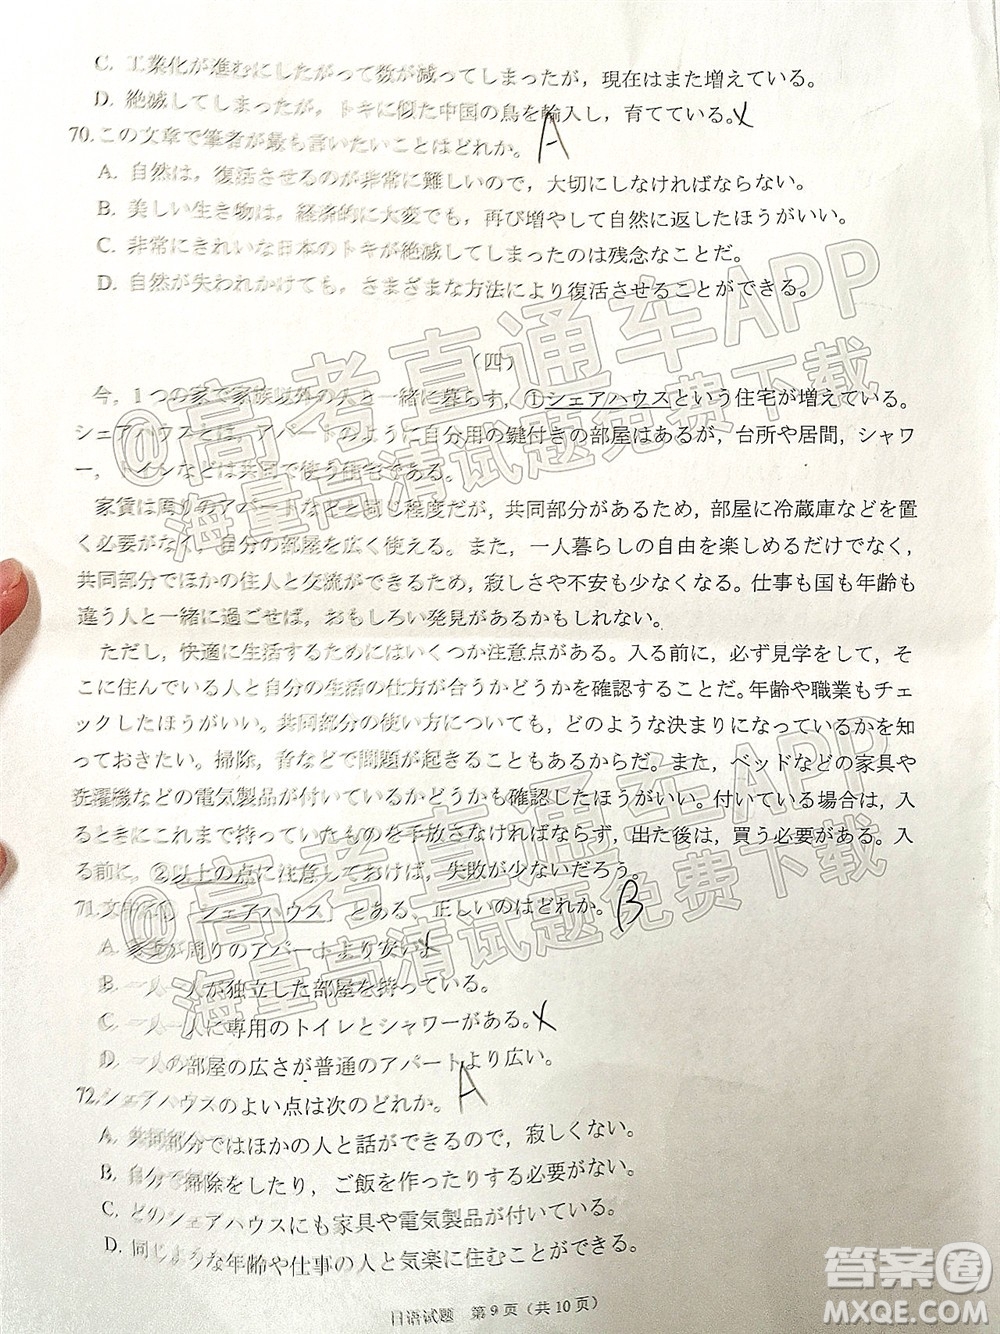 C. 工業化が進むにしたがって数が減ってしまったが，現在はまた増えている。
D. 絶滅してしまったが，トキに似た中国の鳥を輸入し，育てている。X
70.この文章で筆者が最も言いたいことはどれか。 A
A. 自然は，復活させるのが非常に難しいので，大切にしなければならない。
B. 美しい生き物は，経済的に大変でも，再び増やして自然に返したほうがいい。
C. 非常にきれいな日本のトキが絶滅してしまったのは残念なことだ。
D. 自然が失われかけても，さまざまな方法により復活させることができる。
（四）
今，1つの家で家族以外の人と一緒に暮らす，①シェアハウスという住宅が増えている。
シェアハウスとは，アパートのように自分用の鍵付きの部屋はあるが，台所や居間，シャワ
ー，トイレなどは共同で使う住宅である。
家賃は周りのアパートなどと同じ程度だが，共同部分があるため，部屋に冷蔵庫などを置
く必要がなく，自分の部屋を広く使える。また，一人暮らしの自由を楽しめるだけでなく，
共同部分でほかの住人と交流ができるため，寂しさや不安も少なくなる。仕事も国も年齢も
違う人と一緒に過ごせば，おもしろい発見があるかもしれない。
ただし，快適に生活するためにはいくつか注意点がある。入る前に，必ず見学をして，そ
こに住んでいる人と自分の生活の仕方が合うかどうかを確認することだ。年齢や職業もチェ
ックしたほうがいい。共同部分の使い方についても，どのような決まりになっているかを知
っておきたい。掃除，音などで問題が起きることもあるからだ。また，ベッドなどの家具や
洗濯機などの電気製品が付いているかどうかも確認したほうがいい。付いている場合は，入
るときにこれまで持っていたものを手放さなければならず，出た後は，買う必要がある。入
る前に，②以上の点に注意しておけば，失敗が少ないだろう。
71.文章に①「シェアハウス」とある、正しいのはどれか。 B
A. 家賃が周りのアパートより安い。X
B. 一人一人が独立した部屋を持っている。
C. 一人一人に専用のトイレとシャワーがある。X
D. 一人の部屋の広さが普通のアパートより広い。
72.シェアハウスのよい点は次のどれか。 A
A. 共同部分ではほかの人と話ができるので，寂しくない。
B. 自分で掃除をしたり，ご飯を作ったりする必要がない。
C. どのシェアハウスにも家具や電気製品が付いている。
D. 同じような年齢や仕事の人と気楽に住むことができる。
日语试题 第9页（共10页）
@高考直通车APP
海量高清试题免费下载
@高考直通车APP
海量高清试题免费下载
答案圈
MXQE.COM